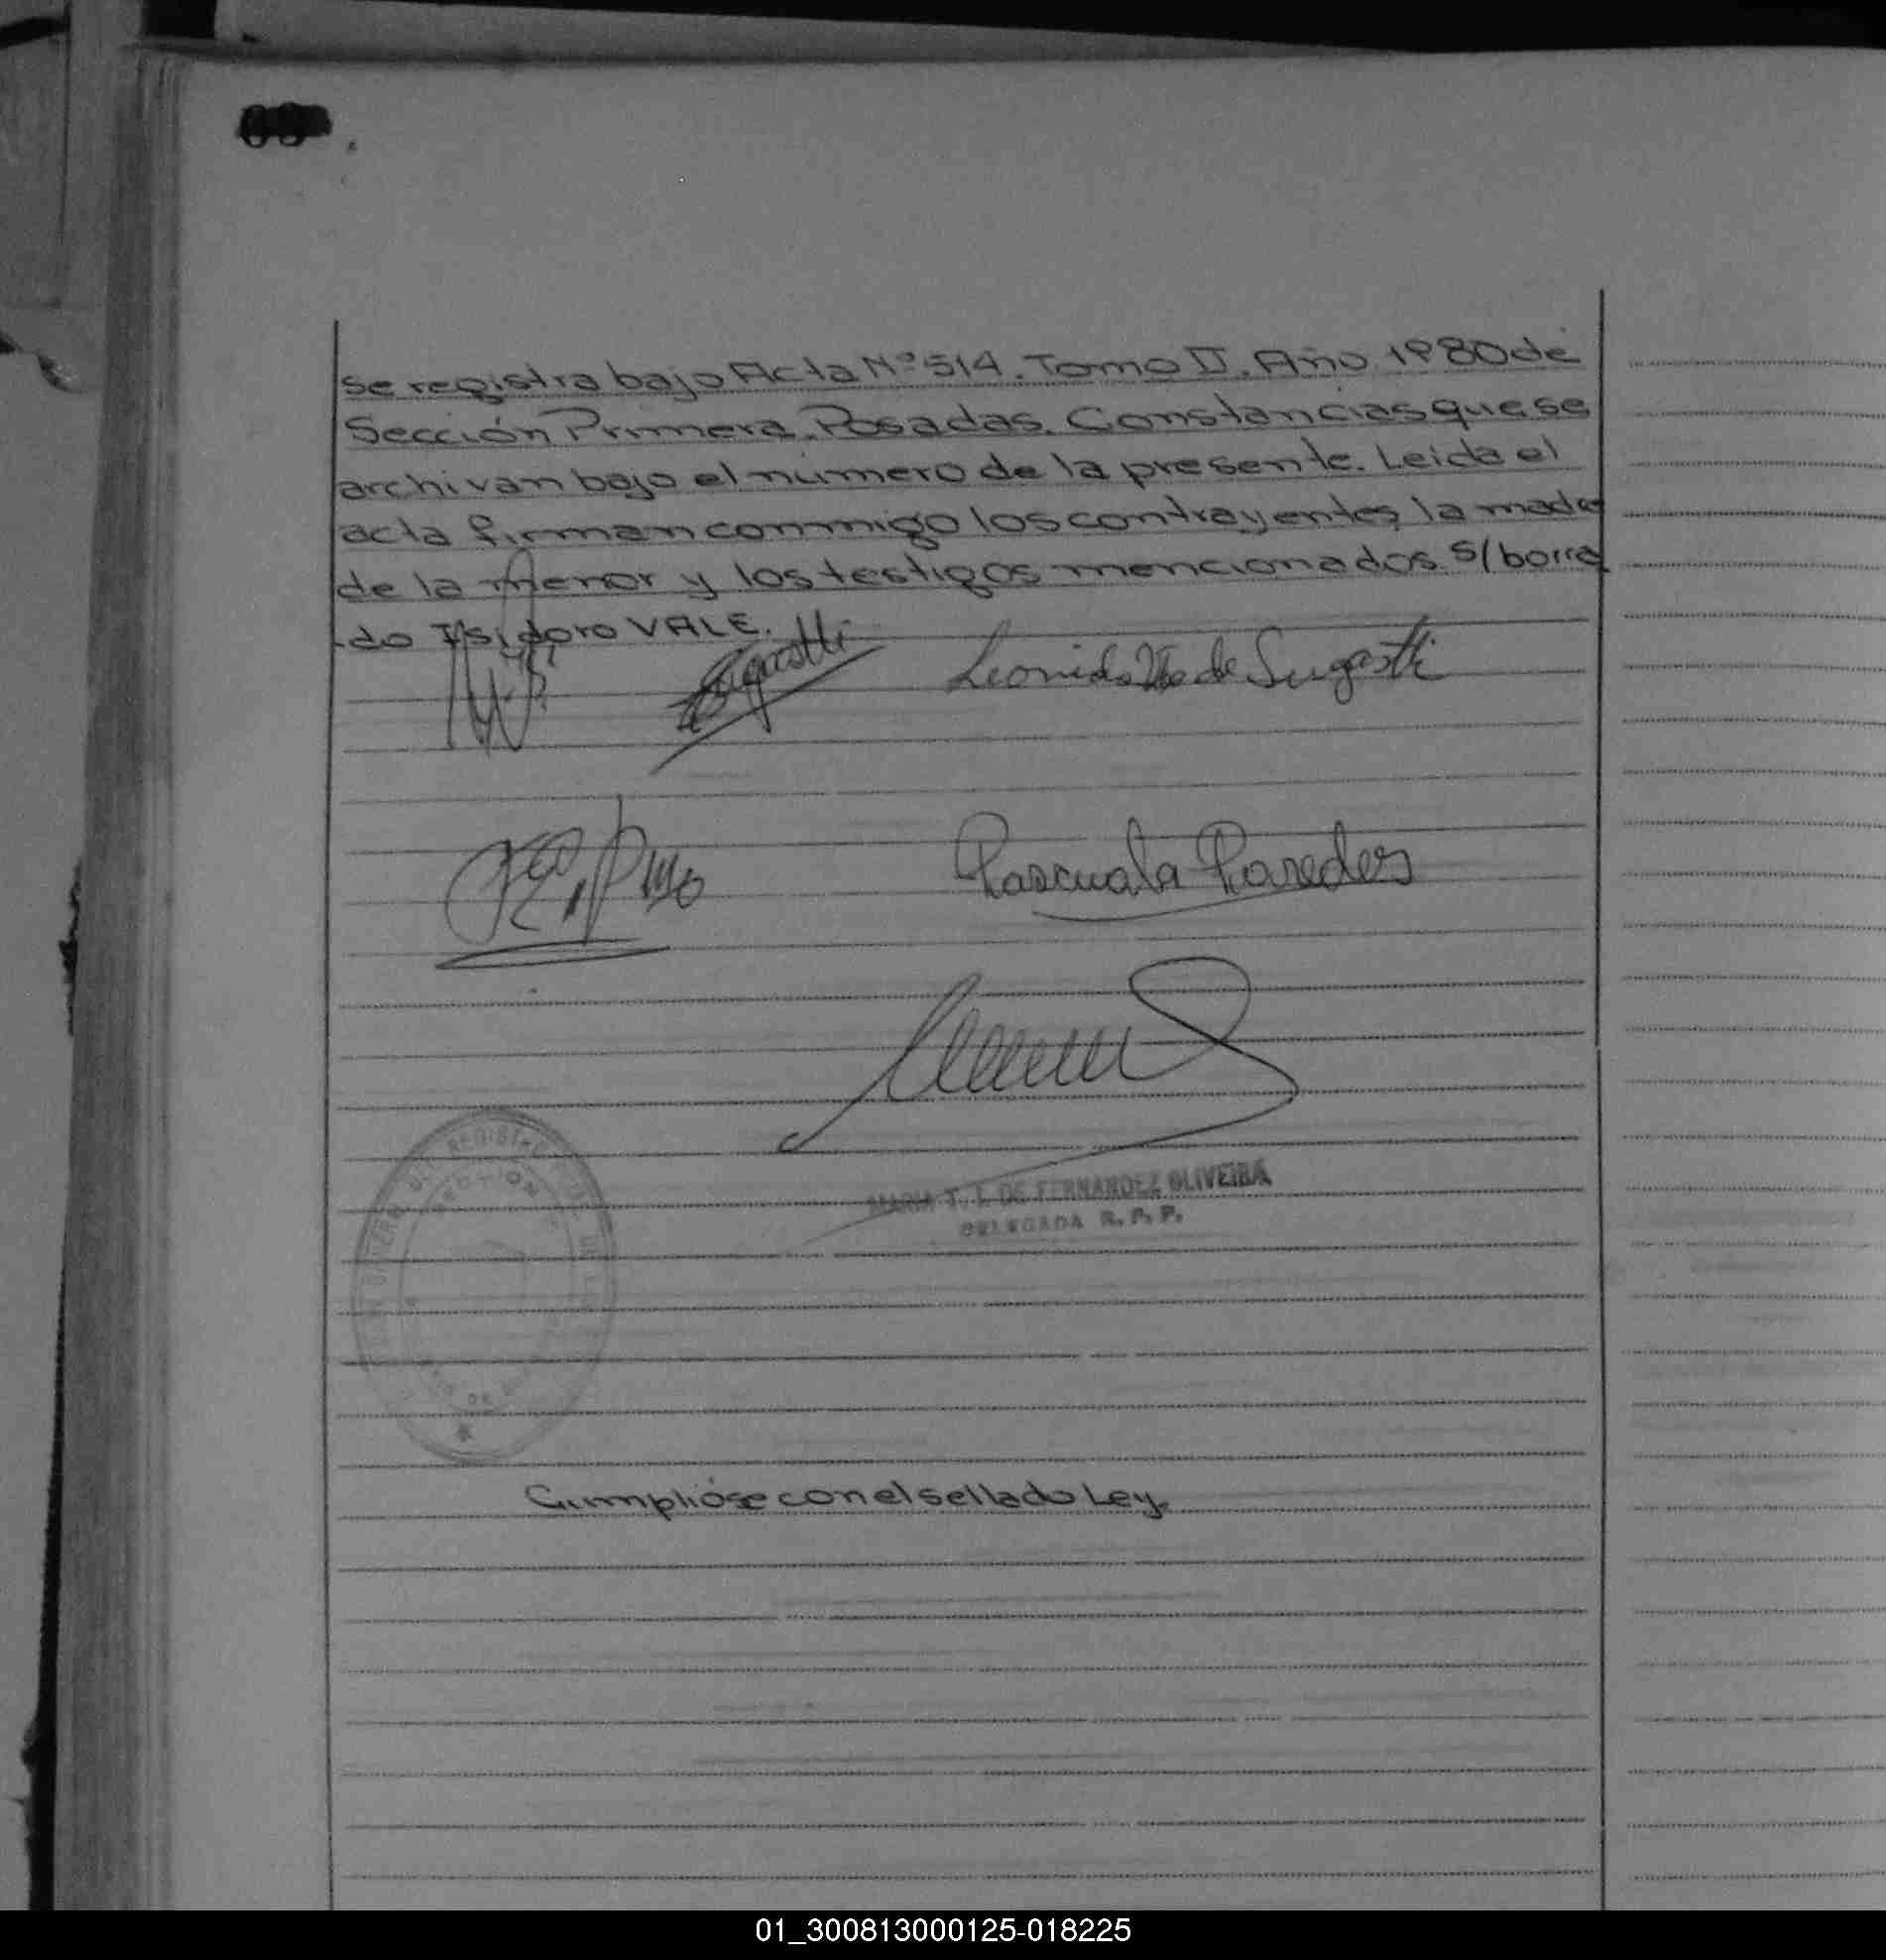 se registra bajo Acta Nº 514. Tomo II. Año 1980 de
Sección Primera, Posadas. Constancias que se
archivan bajo el número de la presente. Leida el
acta firman conmigo los contrayentes, la madre
de la menor y los testigos mencionados. S/borra
-do Isidoro VALE.
Leonida de Sugasti
Pascuala Paredes
MARIA T. I. DE FERNANDEZ OLIVEIRA
DELEGADA R. P. P.
Cumplióse con el sellado Ley.
01_300813000125-018225